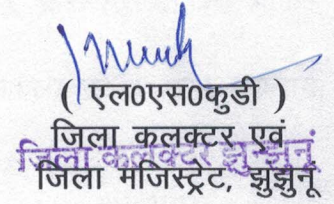 ( एल0एस0कुडी )
जिला कलक्टर एवं
जिला कलक्टर झुन्झुनूं
जिला मजिस्ट्रेट, झुझुनूं